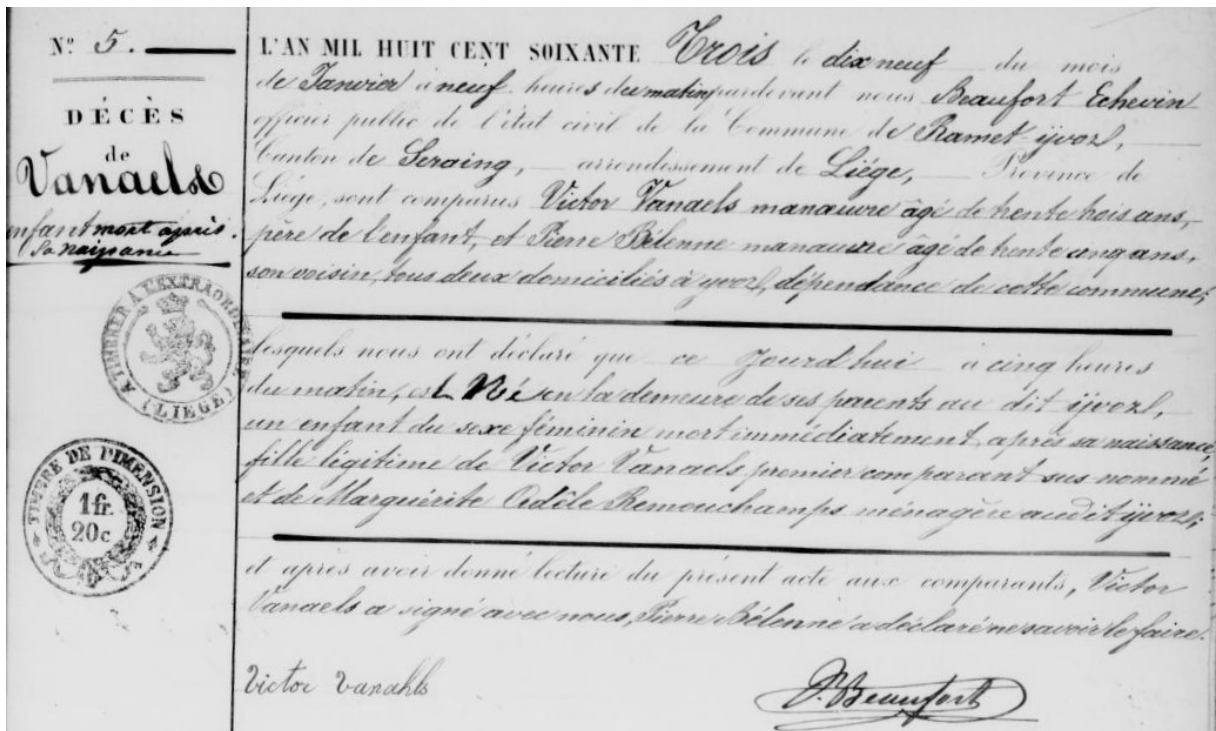 N° 5.
DÉCÈS
de
Vanaels
enfant mort après
sa naissance
A TIMBRER A L'EXTRAORDINAIRE
(LIEGE)
TIMBRE DE DIMENSION
1 fr.
20 c
L'AN MIL HUIT CENT SOIXANTE Trois le dix neuf du mois
de Janvier à neuf heures du matin pardevant nous Beaufort Echevin
officier public de l'état civil de la Commune de Ramet-yvoz,
Canton de Seraing, arrondissement de Liége, Province de
Liége, sont comparus Victor Vanaels manœuvre âgé de trente trois ans,
père de l'enfant, et Pierre Bélenne manœuvre âgé de trente cinq ans,
son voisin, tous deux domiciliés à yvoz, dépendance de cette commune;
lesquels nous ont déclaré que ce Jourd'hui à cinq heures
du matin, est Né en la demeure de ses parents au dit yvoz,
un enfant du sexe féminin mort immédiatement après sa naissance,
fille légitime de Victor Vanaels premier comparant sus nommé
et de Marguérite Odèle Remouchamps ménagère audit yvoz;
et après avoir donné lecture du présent acte aux comparants, Victor
Vanaels a signé avec nous, Pierre Bélenne a déclaré ne savoir le faire.
Victor Vanahls
Beaufort